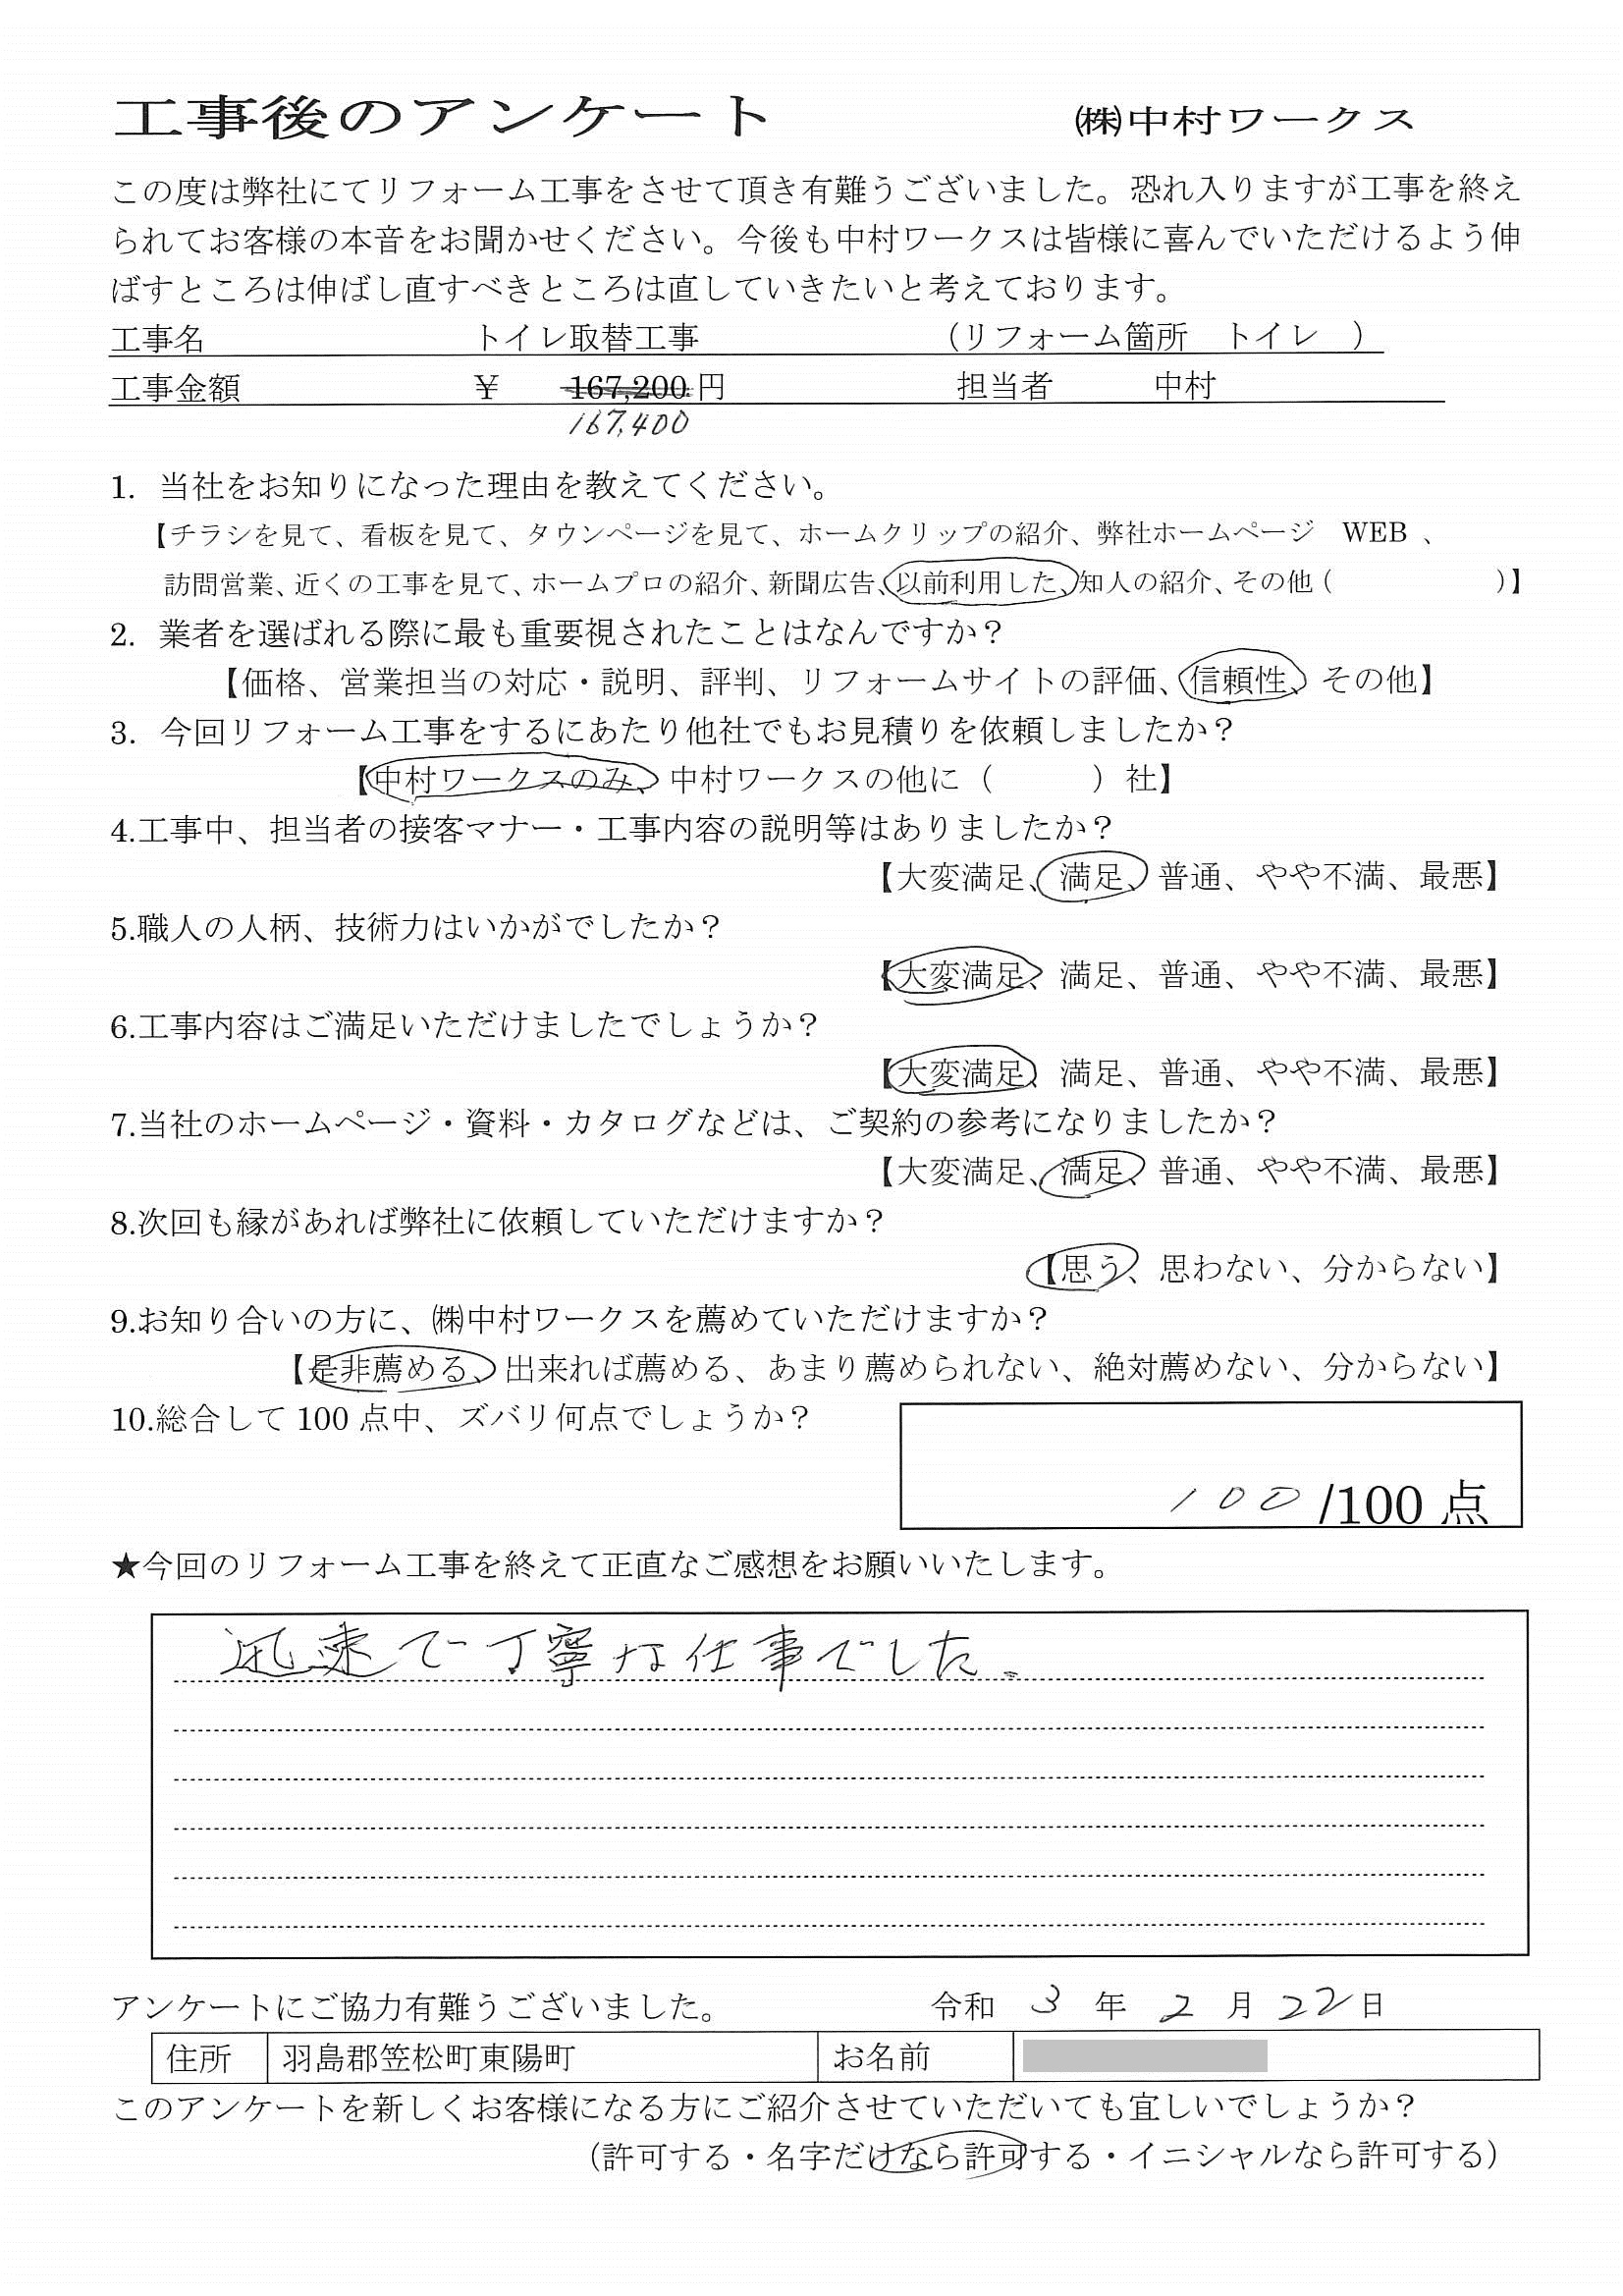 工事後のアンケート ㈱中村ワークス
この度は弊社にてリフォーム工事をさせて頂き有難うございました。恐れ入りますが工事を終え
られてお客様の本音をお聞かせください。今後も中村ワークスは皆様に喜んでいただけるよう伸
ばすところは伸ばし直すべきところは直していきたいと考えております。
工事名 トイレ取替工事 （リフォーム箇所 トイレ ）
工事金額 ￥ 167,200円 担当者 中村
167,400
1. 当社をお知りになった理由を教えてください。
【チラシを見て、看板を見て、タウンページを見て、ホームクリップの紹介、弊社ホームページ WEB 、
訪問営業、近くの工事を見て、ホームプロの紹介、新聞広告、以前利用した、知人の紹介、その他（ ）】
2. 業者を選ばれる際に最も重要視されたことはなんですか？
【価格、営業担当の対応・説明、評判、リフォームサイトの評価、信頼性、その他】
3. 今回リフォーム工事をするにあたり他社でもお見積りを依頼しましたか？
【中村ワークスのみ、中村ワークスの他に（ ）社】
4.工事中、担当者の接客マナー・工事内容の説明等はありましたか？
【大変満足、満足、普通、やや不満、最悪】
5.職人の人柄、技術力はいかがでしたか？
【大変満足、満足、普通、やや不満、最悪】
6.工事内容はご満足いただけましたでしょうか？
【大変満足、満足、普通、やや不満、最悪】
7.当社のホームページ・資料・カタログなどは、ご契約の参考になりましたか？
【大変満足、満足、普通、やや不満、最悪】
8.次回も縁があれば弊社に依頼していただけますか？
【思う、思わない、分からない】
9.お知り合いの方に、㈱中村ワークスを薦めていただけますか？
【是非薦める、出来れば薦める、あまり薦められない、絶対薦めない、分からない】
10.総合して 100 点中、ズバリ何点でしょうか？
100 /100 点
★今回のリフォーム工事を終えて正直なご感想をお願いいたします。
迅速で丁寧な仕事でした。
アンケートにご協力有難うございました。 令和 3 年 2 月 22 日
住所 羽島郡笠松町東陽町 お名前
このアンケートを新しくお客様になる方にご紹介させていただいても宜しいでしょうか？
（許可する・名字だけなら許可する・イニシャルなら許可する）